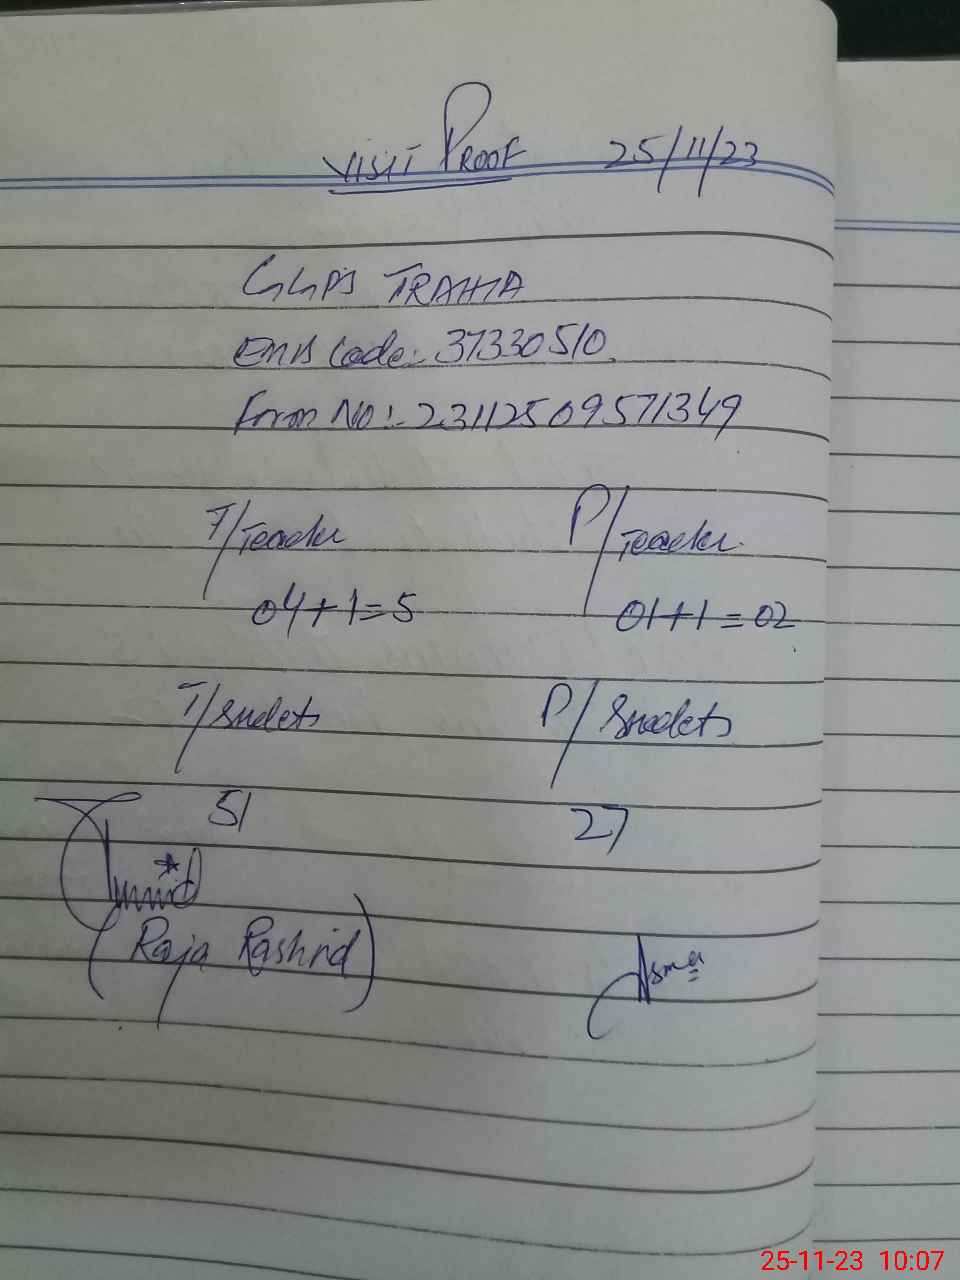 VISIT PROOF 25/11/23
GGPS TRAHIA
EMIS Code:- 37330510
Form No:- 23112509571349
T/Teacher P/Teacher
04+1=5 01+1=02
T/Studets P/Studets
51 27
(Raja Rashid)
Asma
25-11-23 10:07